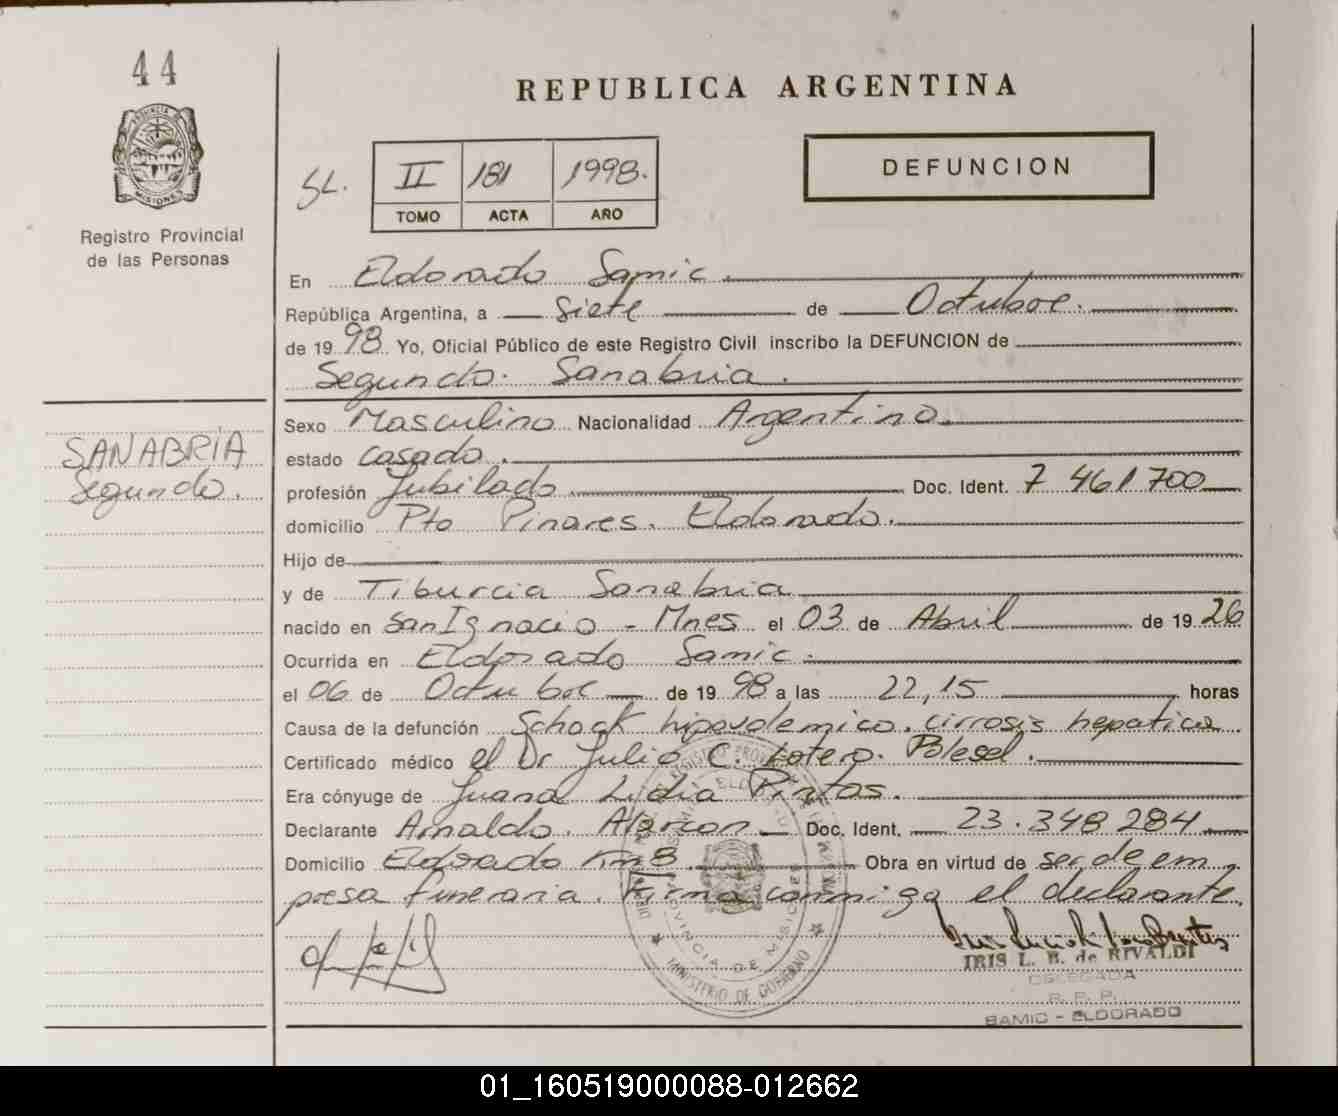 44
REPUBLICA ARGENTINA
PROVINCIA DE MISIONES
Registro Provincial
de las Personas
SL.
II 181 1998.
TOMO ACTA AÑO
DEFUNCION
En Eldorado Samic.
República Argentina, a Siete de Octubre.
de 1998 Yo, Oficial Público de este Registro Civil inscribo la DEFUNCION de
Segundo Sanabria.
SANABRIA
Segundo.
Sexo Masculino Nacionalidad Argentino.
estado casado.
profesión Jubilado Doc. Ident. 7 461 700
domicilio Pto Pinares. Eldorado.
Hijo de
y de Tiburcia Sanabria
nacido en San Ignacio - Mnes el 03 de Abril de 1926
Ocurrida en Eldorado Samic.
el 06 de Octubre de 1998 a las 22,15 horas
Causa de la defunción Schock hipovolemico. cirrosis hepatica
Certificado médico el Dr Julio C. Polesel.
Era cónyuge de Juana Lidia Pintos.
Declarante Arnaldo. Alarcon Doc. Ident. 23.348 284
Domicilio Eldorado Km 8 Obra en virtud de ser de em
presa funeraria. Firma conmigo el declarante.
REGISTRO PROVINCIAL
PROVINCIA DE MISIONES
MINISTERIO DE GOBIERNO
IRIS L. B. de RIVALDI
DELEGADA
R. P. P.
SAMIC - ELDORADO
01_160519000088-012662